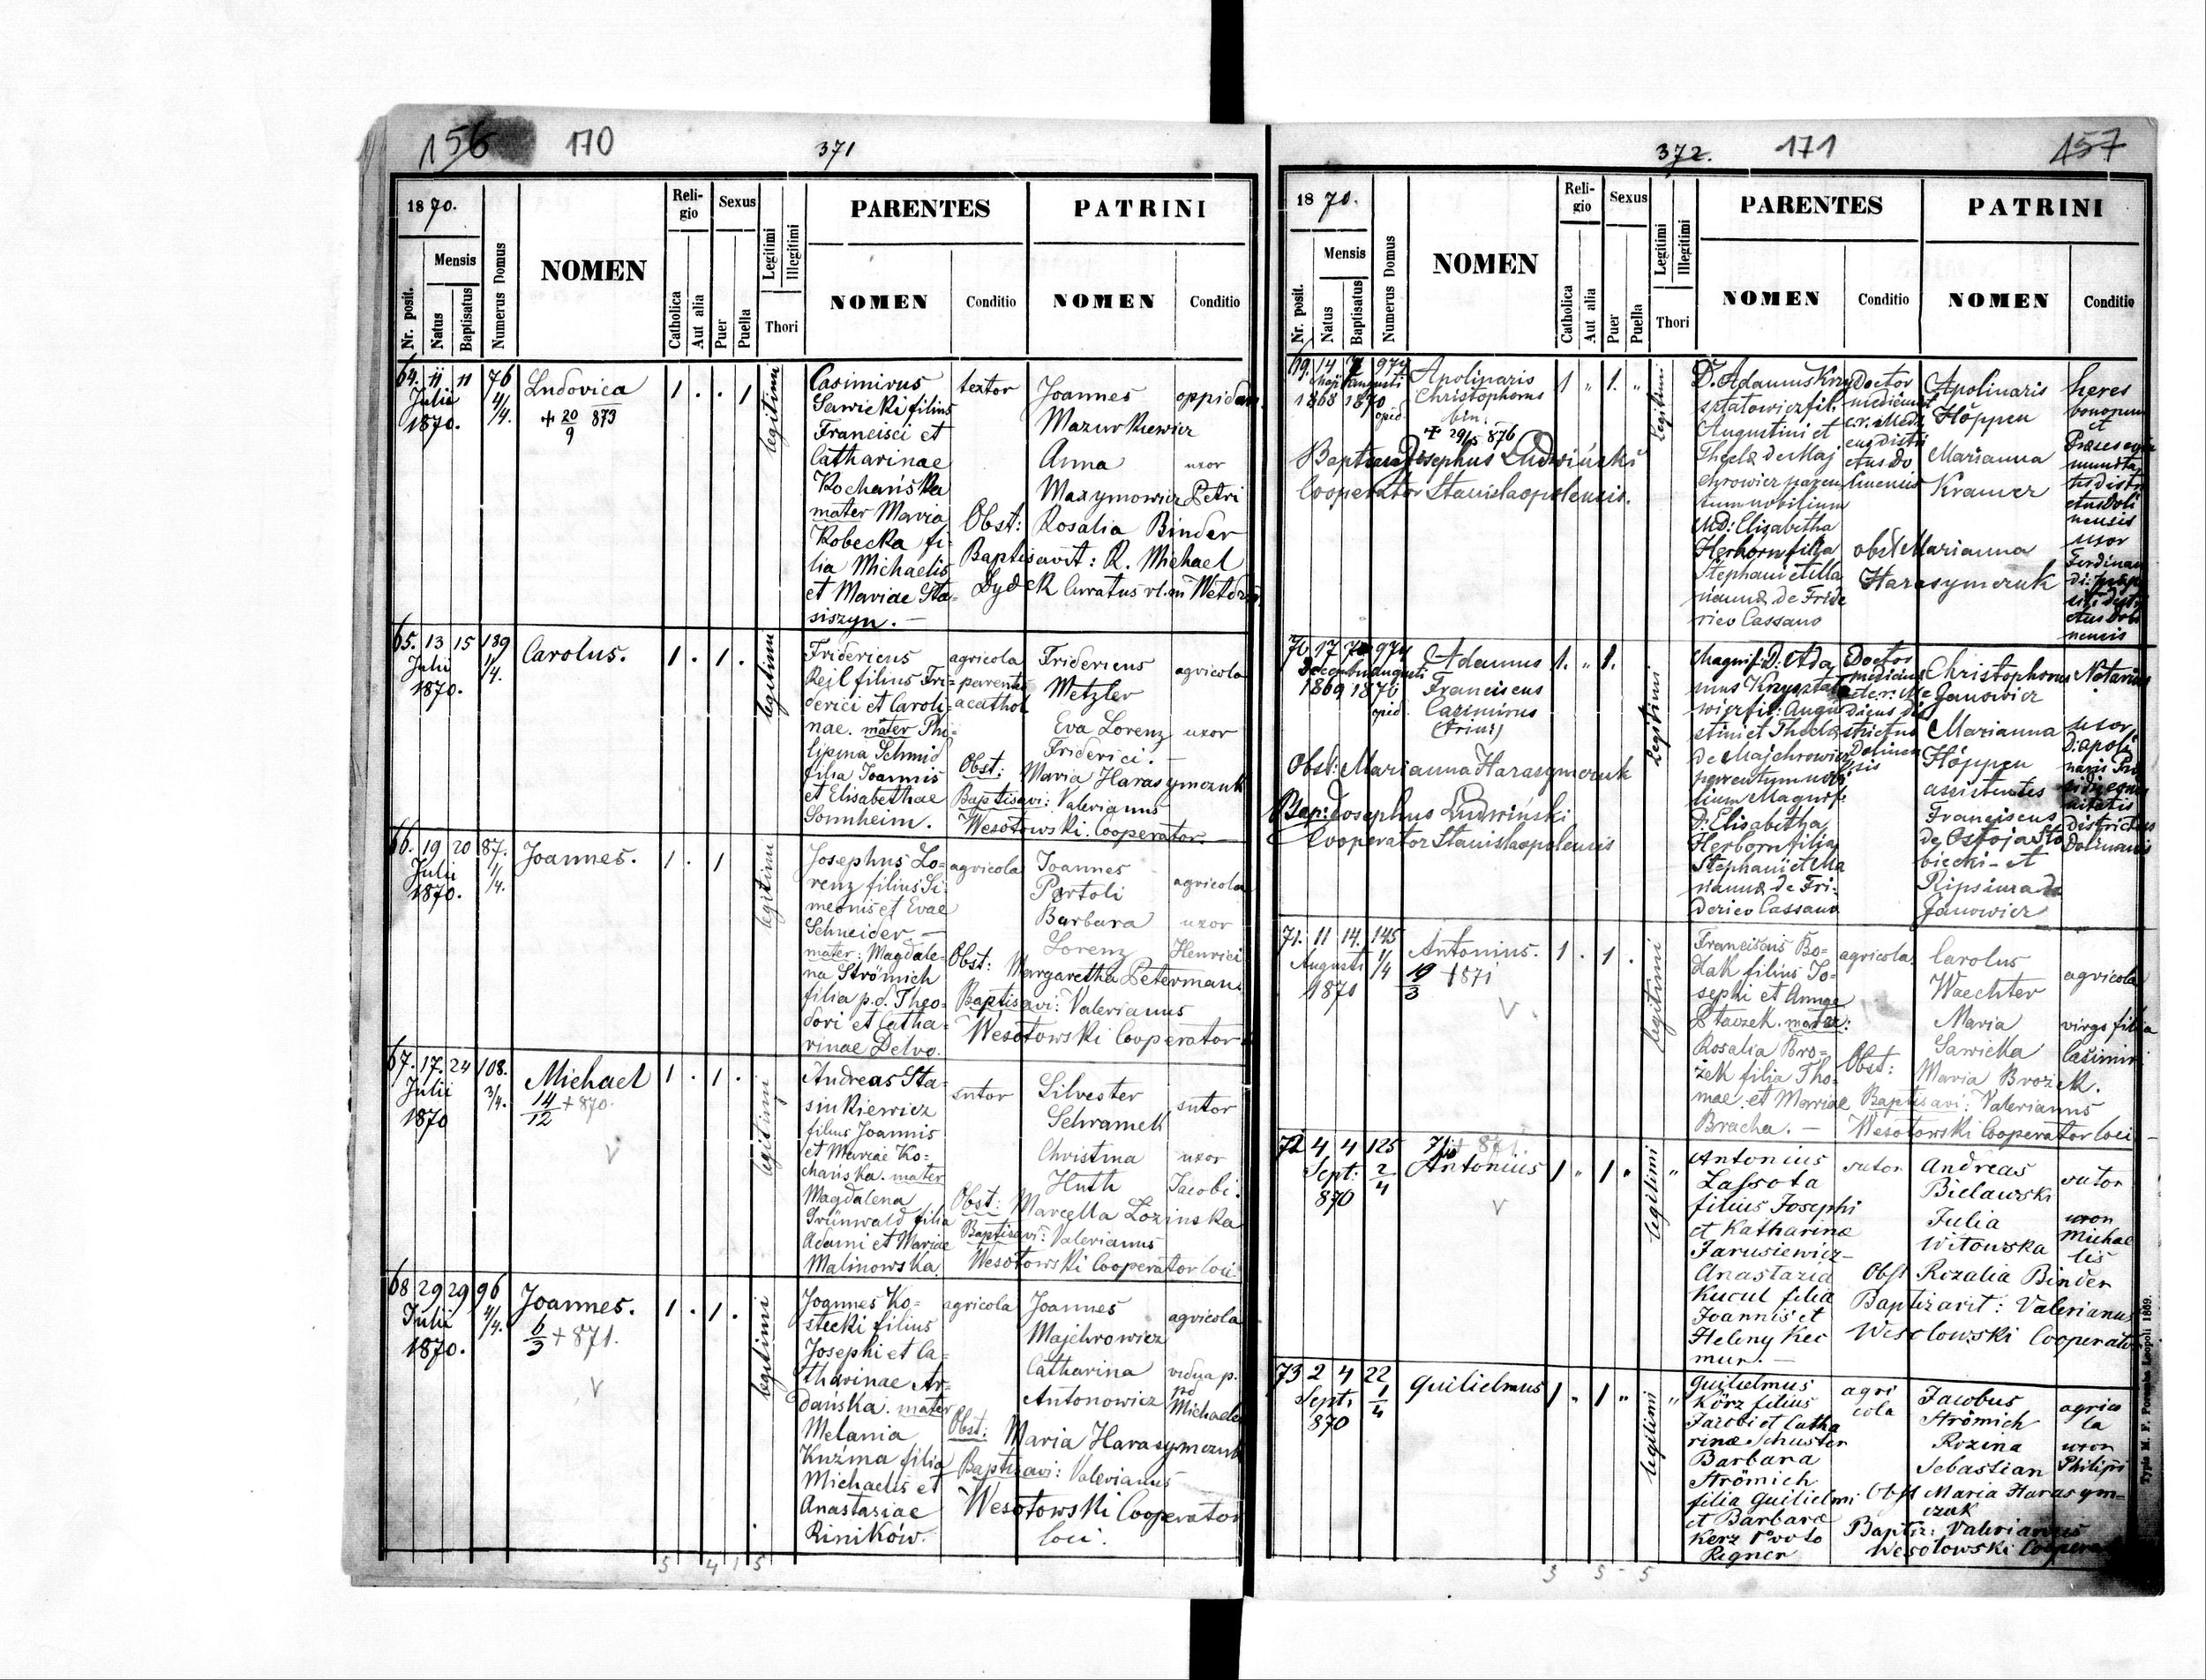 156 170 371
1870.
Nr. posit.
Mensis
Natus
Baptisatus
Numerus Domus
NOMEN
Religio
Catholica
Aut alia
Sexus
Puer
Puella
Legitimi
Illegitimi
Thori
PARENTES
NOMEN
Conditio
PATRINI
NOMEN
Conditio
64. 11 11 76
Julii 4/4.
1870.
Ludovica
+ 20/9 873
1 . . 1
legitimi
Casimirus
Sawicki filius
Francisci et
Catharinae
Kochańska
mater Maria
Kobecka fi-
lia Michaelis
et Mariae Sta-
siszyn. —
textor
Joannes
Mazurkiewicz
Anna
Maxymowicz
oppidan
uxor
Petri
Obst: Rosalia Binder
Baptisavit: R. Michael
Dydek Curatus
65. 13 15 189
Julii 1/4.
1870.
Carolus.
1 . 1 .
legitimi
Fridericus
Reil filius Fri-
derici et Caroli-
nae. mater Phi-
lipina Schmid
filia Joannis
et Elisabethae
Sonnheim.
agricola
parentes
acathol
Fridericus
Metzler
Eva Lorenz
Friderici. —
agricola
uxor
Obst: Maria Harasymczuk
Baptisavi: Valerianus
Wesołowski. Cooperator.
66. 19 20 87.
Julii 1/4.
1870.
Joannes.
1 . 1
legitimi
Josephus Lo-
renz filius Si-
meonis et Evae
Schneider —
mater: Magdale-
na Strömich
filia p.d. Theo-
dori et Catha-
rinae Delvo.
agricola
Joannes
Partoli
Barbara
Lorenz
agricola
uxor
Henrici
Obst: Margaretha Petermann
Baptisavi: Valerianus
Wesołowski Cooperator
67. 17. 24 108.
Julii 3/4.
1870
Michael
14/12 + 870.
1 . 1 .
legitimi
Andreas Sta-
sinkiewicz
filius Joannis
et Mariae Ko-
chańska. mater
Magdalena
Grünwald filia
Adami et Mariae
Malinowska.
sutor
Silvester
Schramek
Christina
Huth
sutor
uxor
Jacobi.
Obst: Marcella Lozinska
Baptisavi: Valerianus
Wesołowski Cooperator loci.
68 29 29 96
Julii 4/4.
1870.
Joannes.
6/3 + 871.
1 . 1 .
legitimi
Joannes Ko-
stecki filius
Josephi et Ca-
tharinae Ar-
dańska. mater
Melania
Kuźma filia
Michaelis et
Anastasiae
Riników.
agricola
Joannes
Majchrowicz
Catharina
Antonowicz
agricola
vidua p.
Michaelis
Obst: Maria Harasymczuk
Baptisavi: Valerianus
Wesołowski Cooperator
loci.
5 4 1 5
372. 171 157
1870.
Nr. posit.
Mensis
Natus
Baptisatus
Numerus Domus
NOMEN
Religio
Catholica
Aut alia
Sexus
Puer
Puella
Legitimi
Illegitimi
Thori
PARENTES
NOMEN
Conditio
PATRINI
NOMEN
Conditio
69. 14 7 974
Maji Augusti
1868 1870
Apolinaris
Christophorus
bin.
+ 29/5 876
1 " 1. "
legitimi
D. Adamus Krzy
sztatowicz fil.
Augustini et
Theclæ de Maj
chrowicz paren
tum nobilium
M D: Elisabetha
Herborn filia
Stephani et Ma
riannæ de Fride
rico Cassano
Doctor
medicinæ
Apolinaris
Höppen
Marianna
Kramer
heres
bonorum
et
uxor
Ferdinan
di
nensis
obst Marianna
Harasymczuk
Baptisavit Josephus Ludwiński
Cooperator Stanislaopolensis.
70 17 974
Decembris Augusti
1869 1870
Adamus
Franciscus
Casimirus
(trini)
1. " 1.
legitimi
Magnif. D. Ada
mus Krzyszta
wicz fil: Augu
stini et Theclæ
de Majchrowicz
parentum nobi
lium Magnif:
D. Elisabetha
Herborn filia
Stephani et Ma
riannæ de Fri-
derico Cassano
Doctor
medicinæ
Christophorus
Janowicz
Marianna
Höppen
assistentes
Franciscus
de Ostoja Sło
biecki - et
Ripsima de
Janowicz
Notarius
uxor
D: Apoli
naris
districtus
Dolinensis
Obst: Marianna Harasymczuk
Bap: Josephus Ludwiński
Cooperator Stanislaopolensis
71. 11 14. 145
Augusti 1/4
1870
Antonius.
19/3 +871
1 . 1 .
legitimi
Franciscus Bo-
dak filius Jo-
sephi et Annae
Ptaszek. mater:
Rosalia Bro-
żek filia Tho-
mae et Mariae
Bracha. —
agricola.
Carolus
Waechter
Maria
Sawicka
agricola
virgo filia
Casimiri
Obst: Maria Brożek.
Baptisavi: Valerianus
Wesołowski Cooperator loci —
72 4 4 125
Sept: 2/4
870
Antonius
1 " 1 "
legitimi "
Antonius
Lassota
filius Josephi
et Katharinæ
Jarusiewicz
Anastazia
Kucul filia
Joannis et
Heleny Kec
mur. —
sutor
Andreas
Bielawski
Julia
Witowska
sutor
uxor
Michae
lis
Obst Rozalia Binder
Baptizavit: Valerianus
Wesolowski Cooperator
73 2 4 22
Sept: 1/4
870
Guilielmus
1 " 1 "
legitimi "
Guilielmus
Körz filius
Jacobi et Catha
rinæ Schuster
Barbara
Strömich
filia Guilielmi
et Barbaræ
Kerz 1º voto
Regner
agri
cola
Jacobus
Strömich
Rozina
Sebastian
agrico
la
uxor
Philipi
Obst Maria Harasym-
czuk
Baptiz: Valerianus
Wesołowski Cooperator
5 5 - 5
Typis M. F. Poremba Leopoli 1869.